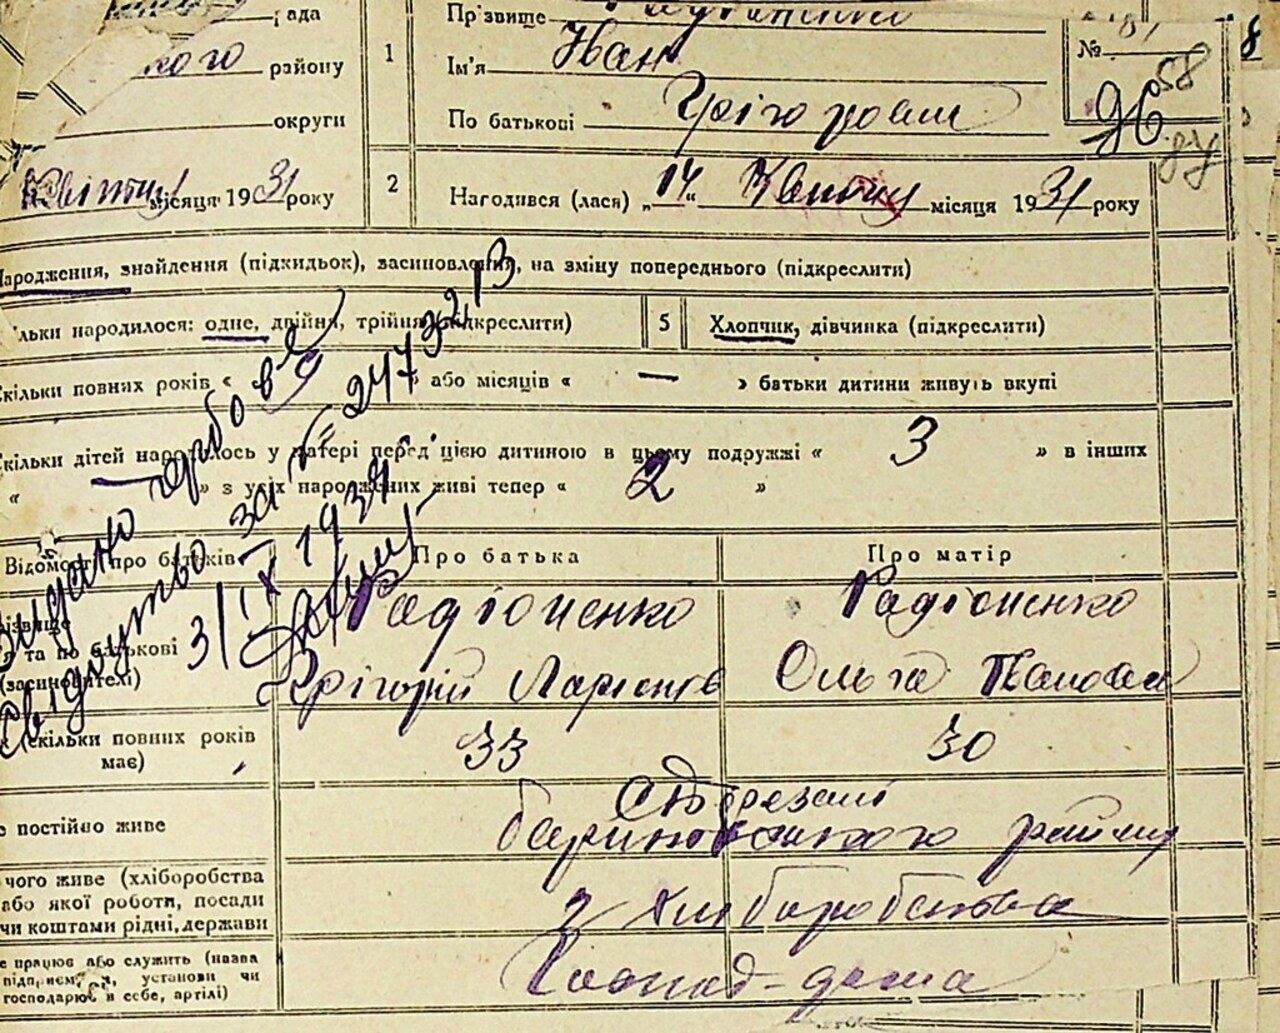 рада
Пр'звище Радіоненко
1
№
кого району
Ім'я Іван
58
96
округи
По батькові Грігорович
87
Квітня місяця 1931 року
2
Нагодився (лася) „14“ Квітня місяця 1931 року
Народження, знайдення (підкидьок), засиновлення, на зміну попереднього (підкреслити)
льки народилося: одне, двійня, трійня (підкреслити)
5
Хлопчик, дівчинка (підкреслити)
Скільки повних років « » або місяців « — » батьки дитини живуть вкупі
Скільки дітей народилось у матері перед цією дитиною в цьому подружжі « 3 » в інших
« — » з усіх народжених живі тепер « 2 »
Видано гербове
Свідоцтво за № 247332
31/IX 1937
Відомості про батьків
Про батька
Про матір
різвище
Радіоненко
Радіоненко
я та по батькові
(засиновителі)
Грігорій Ларионов
Ольга Панова
(скільки повних років
має)
33
30
е постійно живе
района
чого живе (хліборобства
або якої роботи, посади
чи коштами рідні, держави
З хліборобства
е працює або служить (назва
підприєм, установи чи
господарює в себе, артілі)
дома